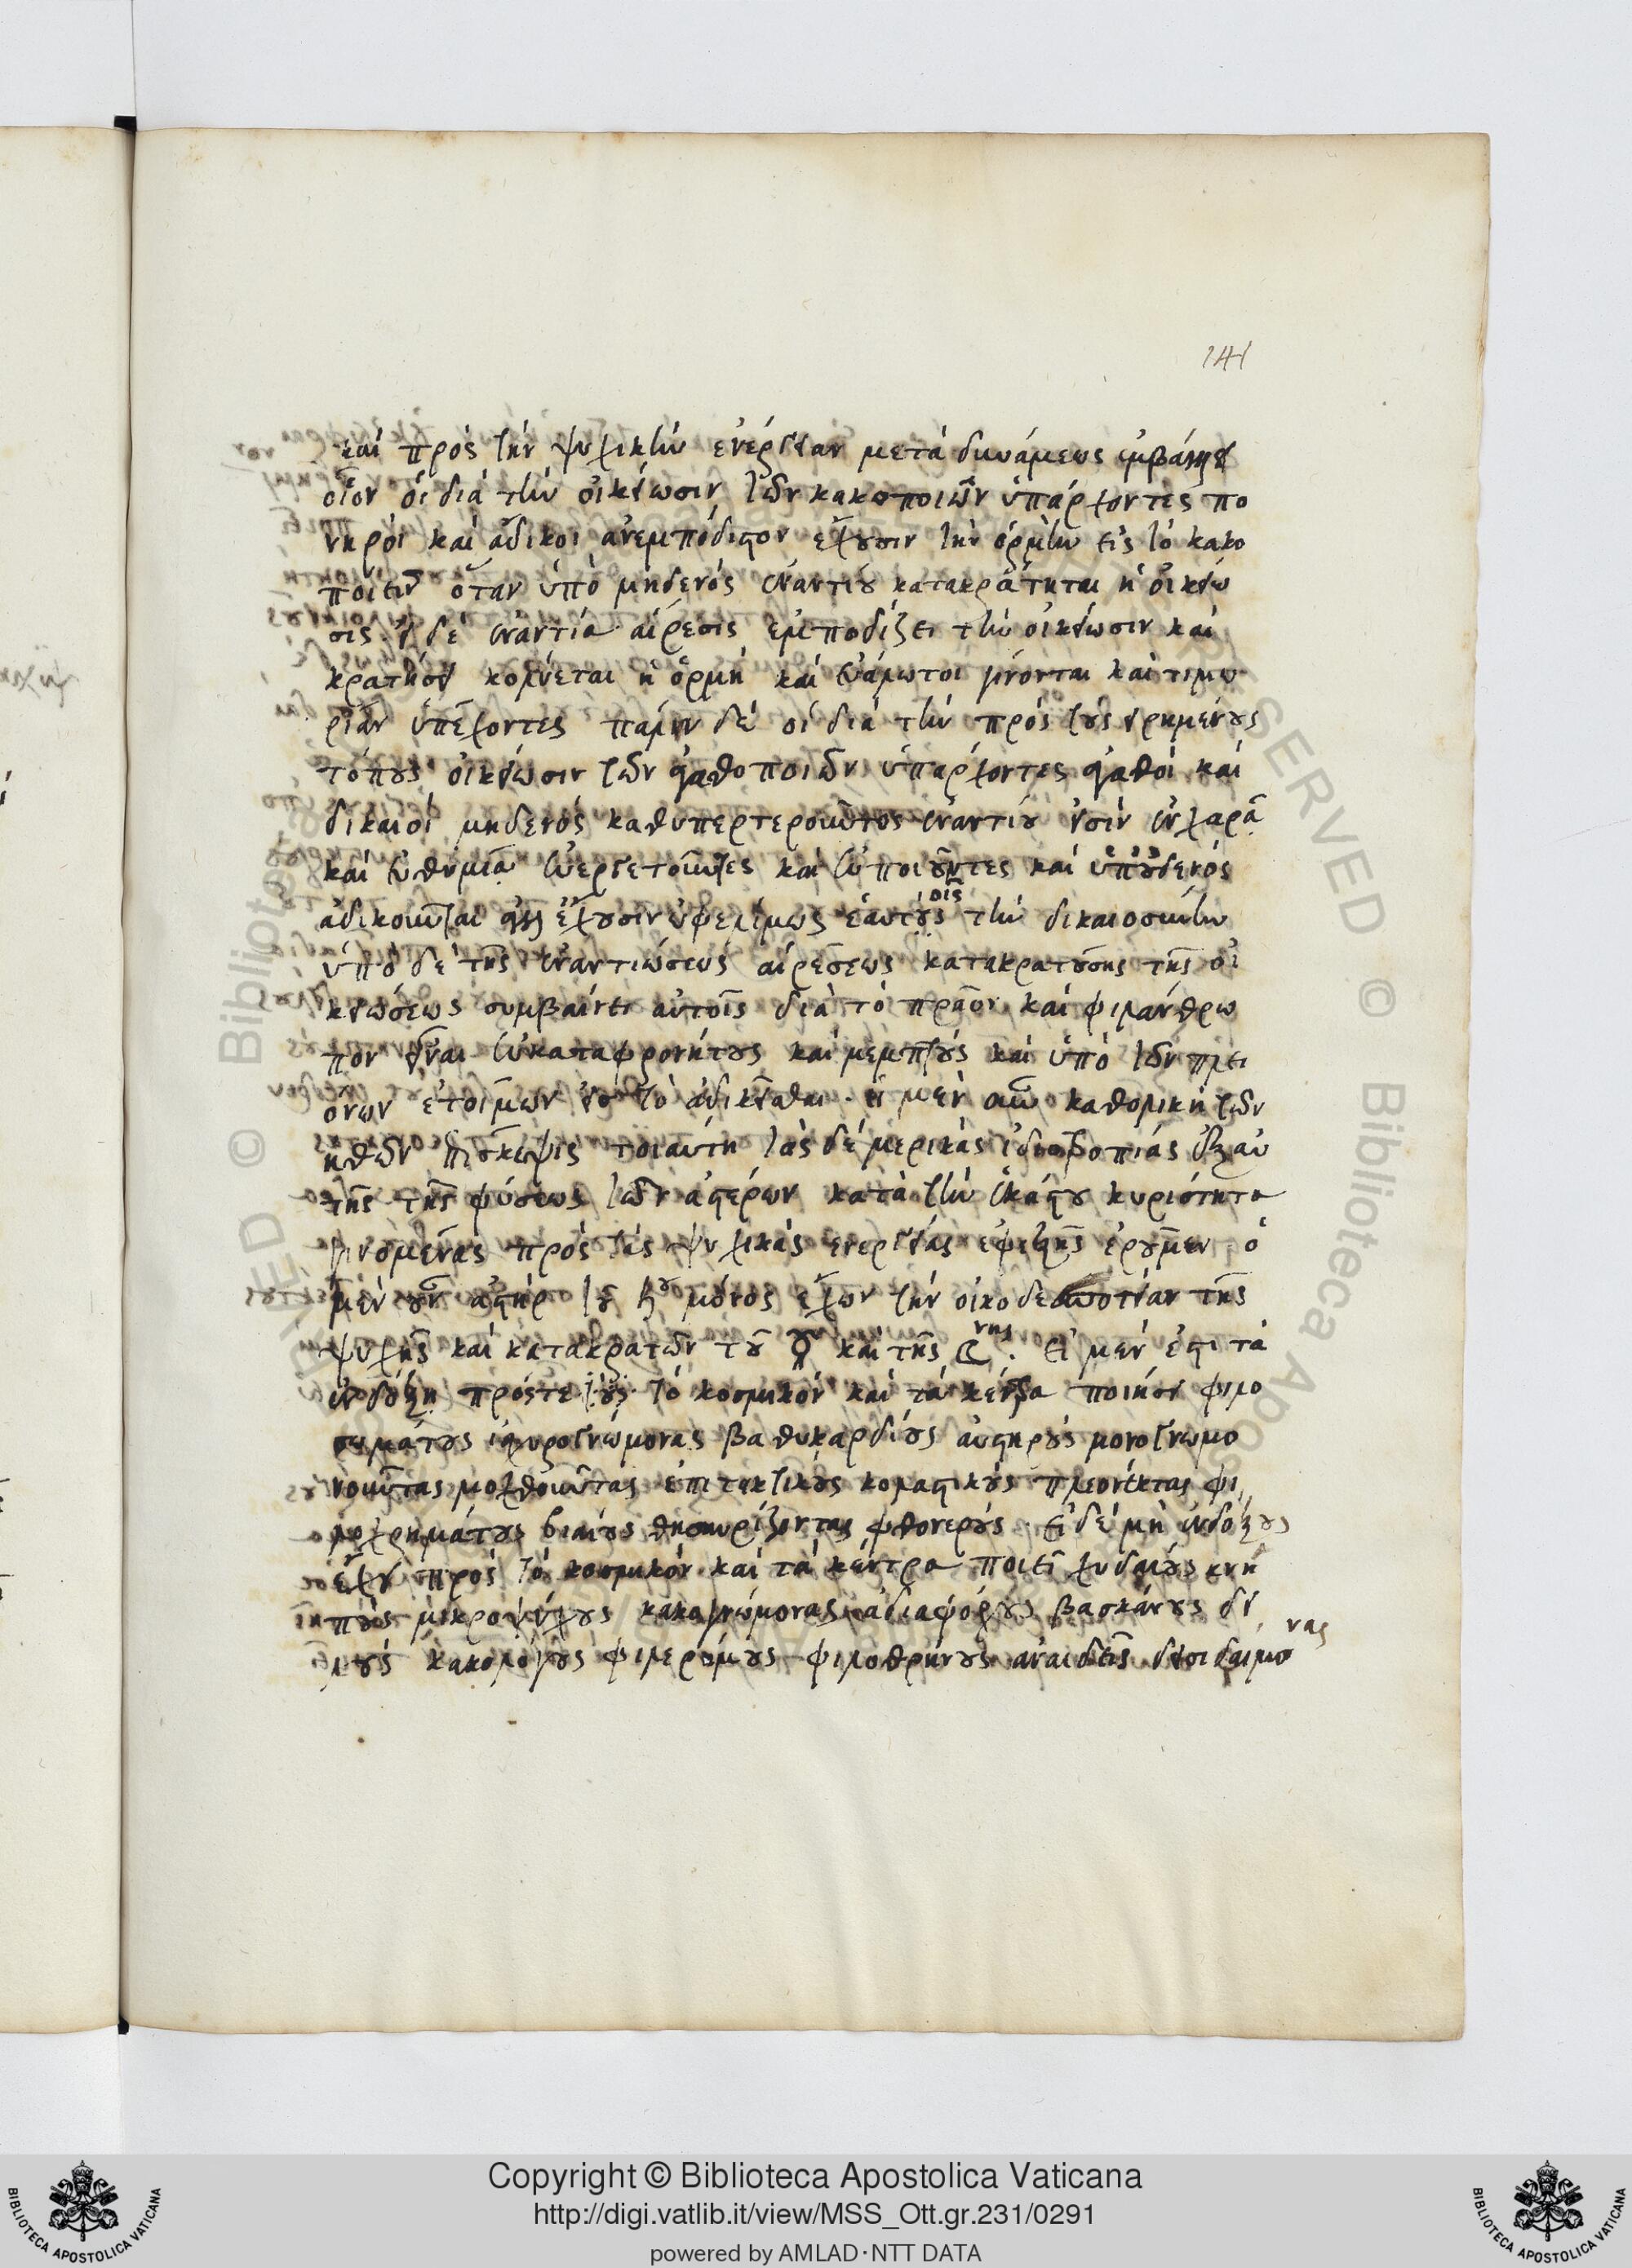 141
καὶ πρὸς τὴν ψυχικὴν ἐνέργειαν μετὰ δυνάμεως
οἷον οἱ διὰ τὴν οἰκείωσιν τῶν κακοποιῶν ὑπάρχοντες πο
νηροὶ καὶ ἄδικοι ἀνεμπόδιστον ἔχουσιν τὴν ὁρμὴν εἰς τὸ κακο
ποιεῖν ὅταν ὑπὸ μηδενὸς ἐναντίου κατακρατῆται ἡ οἰκείω
σις ἡ δὲ ἐναντία αἵρεσις ἐμποδίζει τὴν οἰκείωσιν καὶ
κολύεται ἡ ὁρμὴ καὶ εὐάλωτοι γίνονται καὶ τιμω
ρίαν ὑπέχοντες πάλιν δὲ οἱ διὰ τὴν πρὸς τοὺς εἰρημένους
τόπους οἰκείωσιν τῶν ἀγαθοποιῶν ὑπάρχοντες ἀγαθοὶ καὶ
δίκαιοι μηδενὸς καθυπερτεροῦντος ἐναντίου εἰσὶν ἐν χαρᾷ
καὶ εὐθυμίᾳ εὐεργετοῦντες καὶ εὖ ποιοῦντες καὶ ὑπ' οὐδενὸς
ἀδικοῦνται ἀλλ' ἔχουσιν ὠφελίμως ἑαυτοῖς τὴν δικαιοσύνην
ὑπὸ δὲ τῆς ἐναντιώσεως αἱρέσεως κατακρατούσης τῆς οἰ
κειώσεως συμβαίνει αὐτοῖς διὰ τὸ πρᾶον καὶ φιλάνθρω
πον εἶναι εὐκαταφρονήτους καὶ μεμπτοὺς καὶ ὑπὸ τῶν πλει
όνων ἑτοίμων εἰς τὸ ἀδικεῖσθαι. ἡ μὲν οὖν καθολικὴ τῶν
ἠθῶν ἐπίσκεψις τοιαύτη τὰς δὲ μερικὰς ἰδιοτροπίας ἐξ αὐ
τῆς τῆς φύσεως τῶν ἀστέρων κατὰ τὴν ἑκάστου κυριότητα
γινομένας πρὸς τὰς ψυχικὰς ἐνεργείας ἐφεξῆς ἐροῦμεν ὁ
μὲν οὖν ἀστὴρ τοῦ ♄ου μόνος ἔχων τὴν οἰκοδεσποτείαν τῆς
ψυχῆς καὶ κατακρατῶν τοῦ ☿ου καὶ τῆς ☾νης. εἰ μὲν ἐστι τὰ
ἐνδόξῃ πρός τε τοὺς τὸ κοσμικὸν καὶ τὰ κέντρα ποιήσει φιλο
σωμάτους ἰσχυρογνώμονας βαθυκαρδίους αὐστηροὺς μονογνώμο
νοῦντας μοχθοῦντας ἐπιτακτικοὺς κολαστικοὺς πλεονέκτας φι
λοχρημάτους βιαίους θησαυρίζοντας φθονερούς. εἰ δὲ μὴ ἐνδόξους
ἔχει πρὸς τὸ κοσμικὸν καὶ τὰ κέντρα ποιεῖ χυδαίους κνη
ποὺς μικροψύχους κακογνώμονας ἀδιαφόρους βασκάνους δει
λοὺς κακολόγους φιλερήμους φιλοθρήνους ἀναιδεῖς δεισιδαίμονας
Copyright © Biblioteca Apostolica Vaticana
http://digi.vatlib.it/view/MSS_Ott.gr.231/0291
powered by AMLAD·NTT DATA